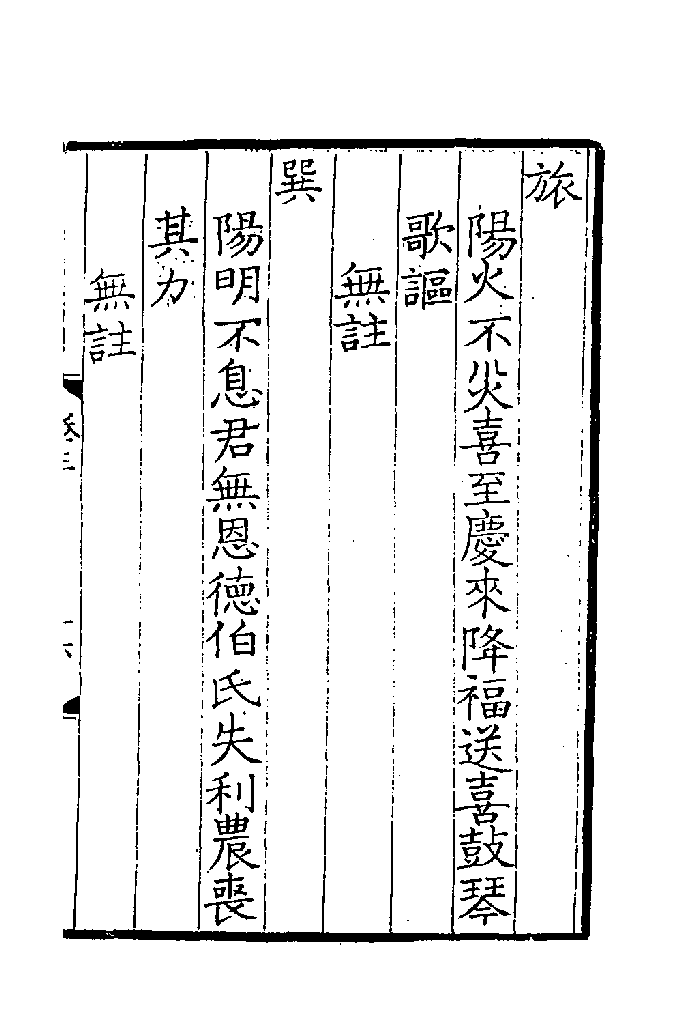 旅
陽火不災喜至慶來降福送喜鼓琴
歌謳
無註
巽
陽明不息君無恩德伯氏失利農喪
其力
無註
卷三